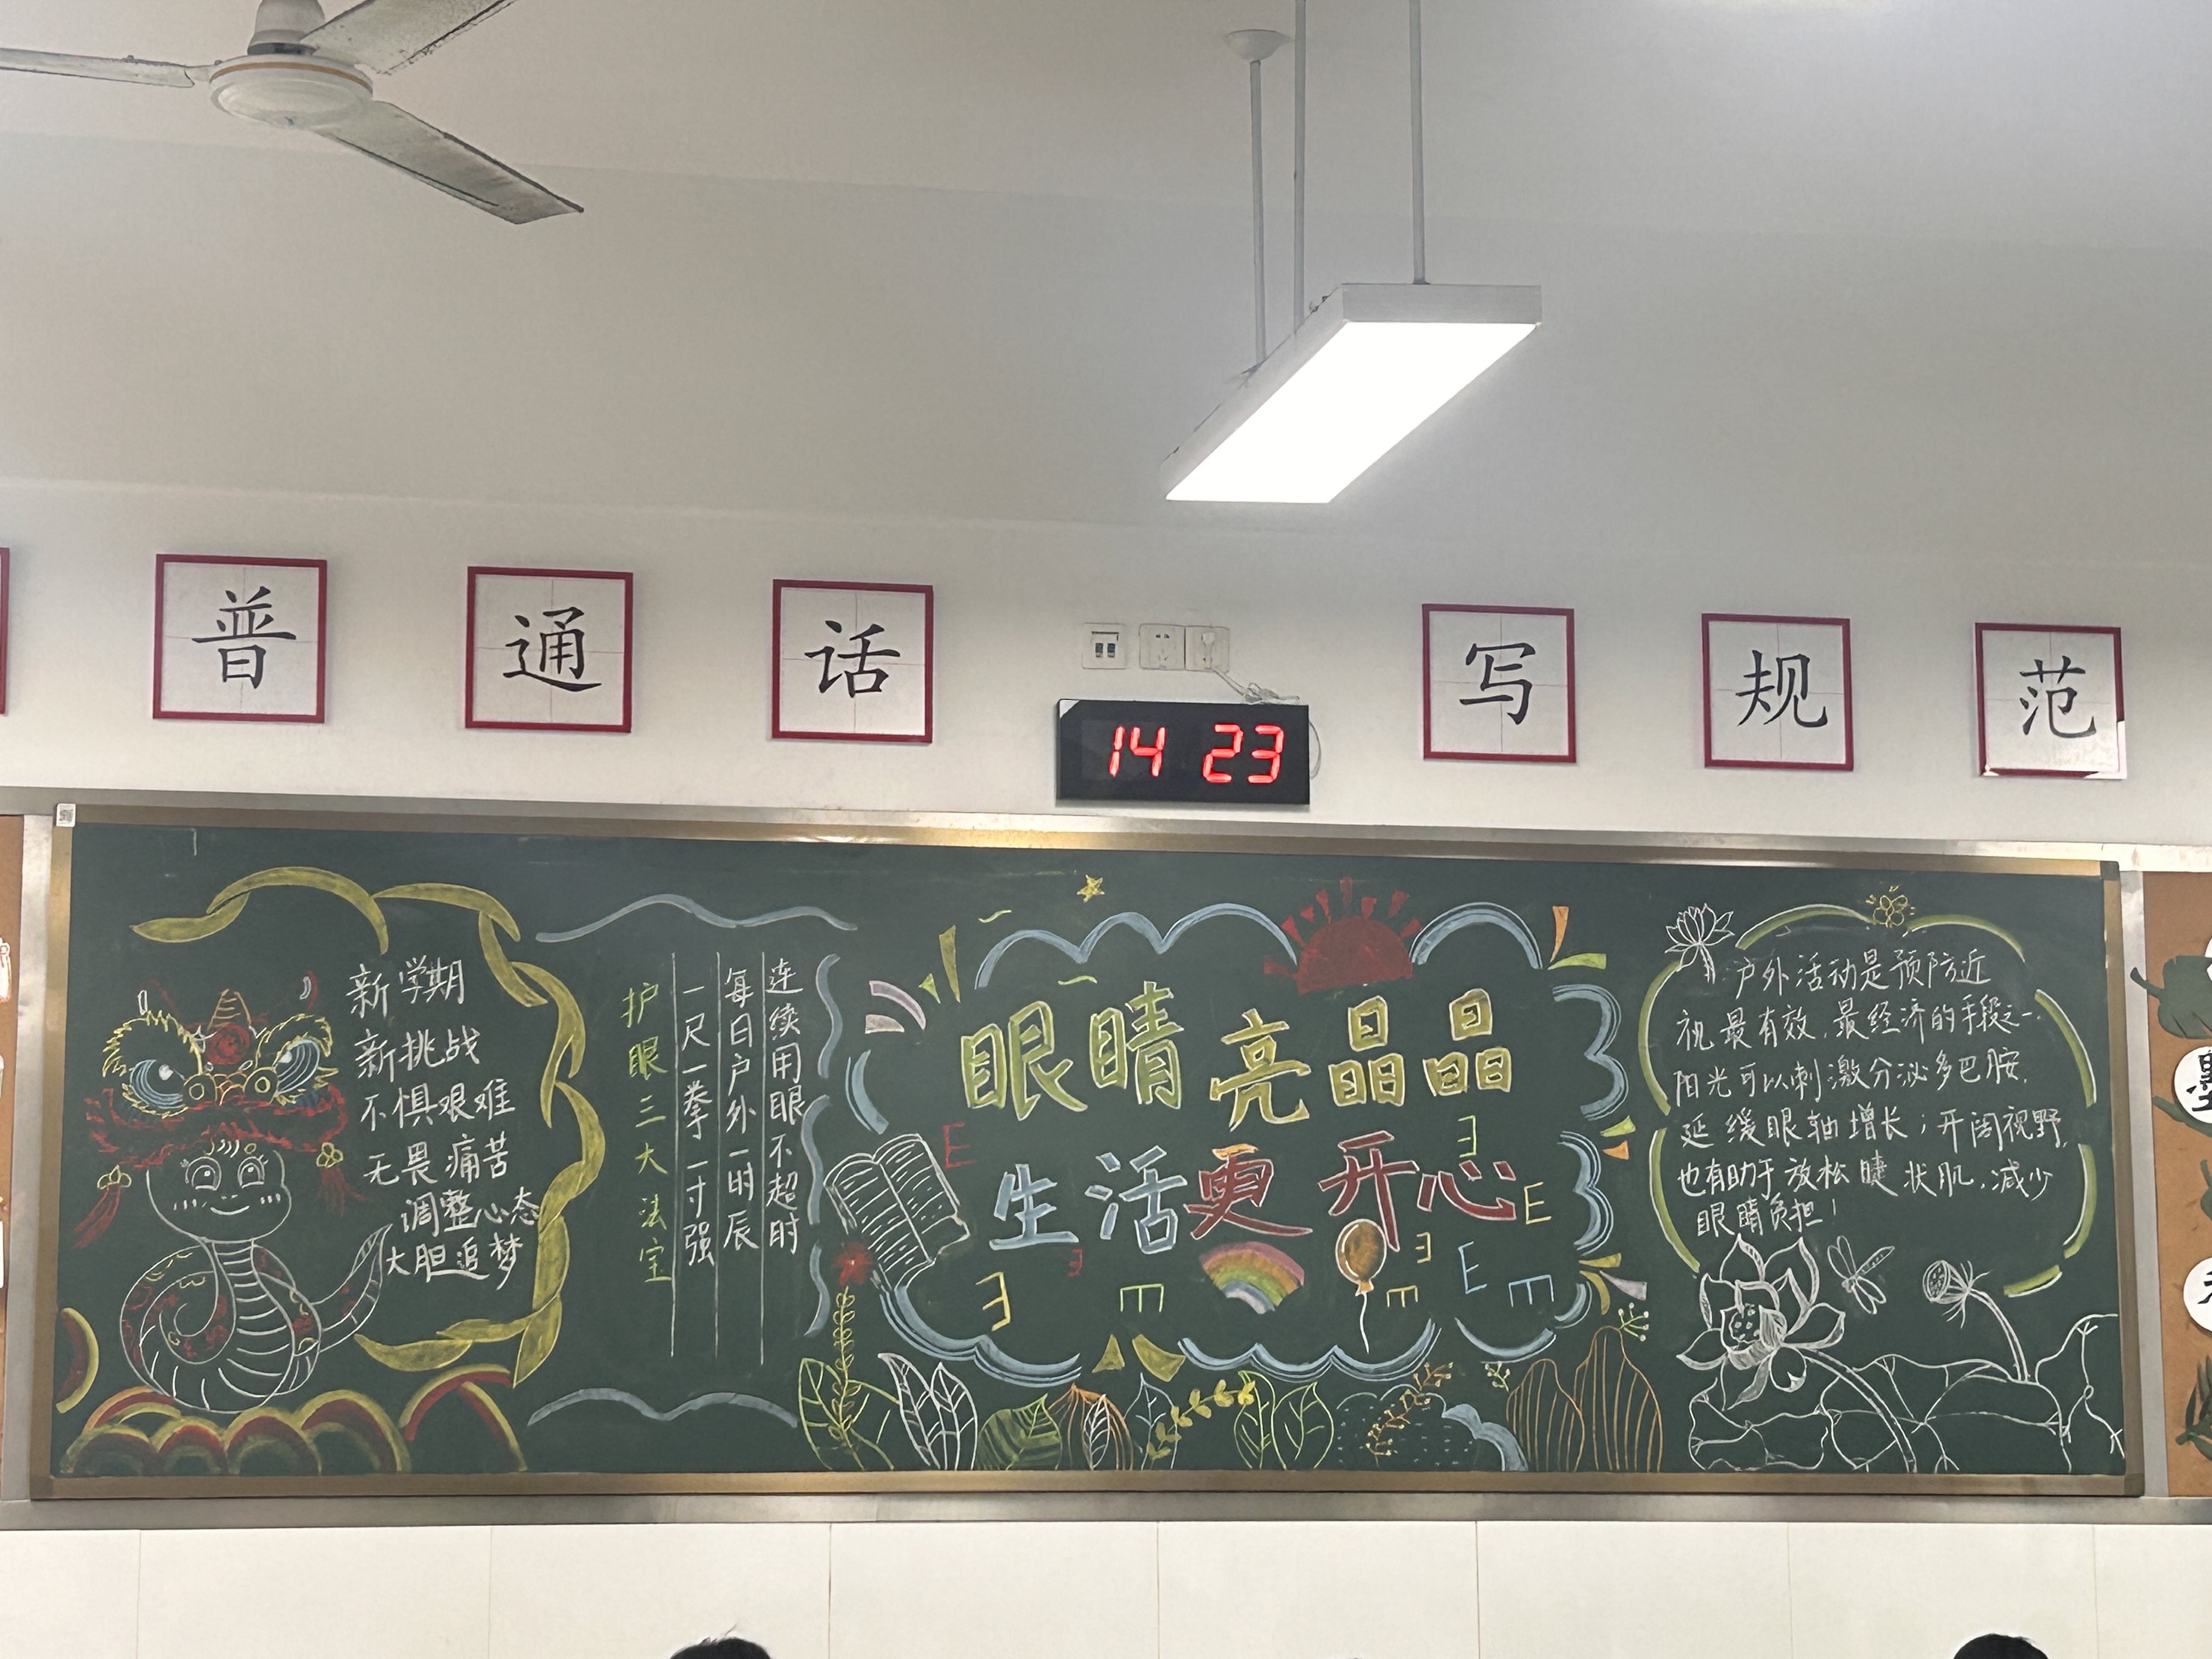 普通话
写规范
14 23
新学期
新挑战
不惧艰难
无畏痛苦
调整心态
大胆追梦
护眼三大法宝
一尺一拳一寸强
每日户外一时辰
连续用眼不超时
眼睛亮晶晶
生活更开心
E
E
E
E
E
E
E
E
E
E
户外活动是预防近
视最有效,最经济的手段之一.
阳光可以刺激分泌多巴胺,
延缓眼轴增长;开阔视野,
也有助于放松睫状肌,减少
眼睛负担!
墨